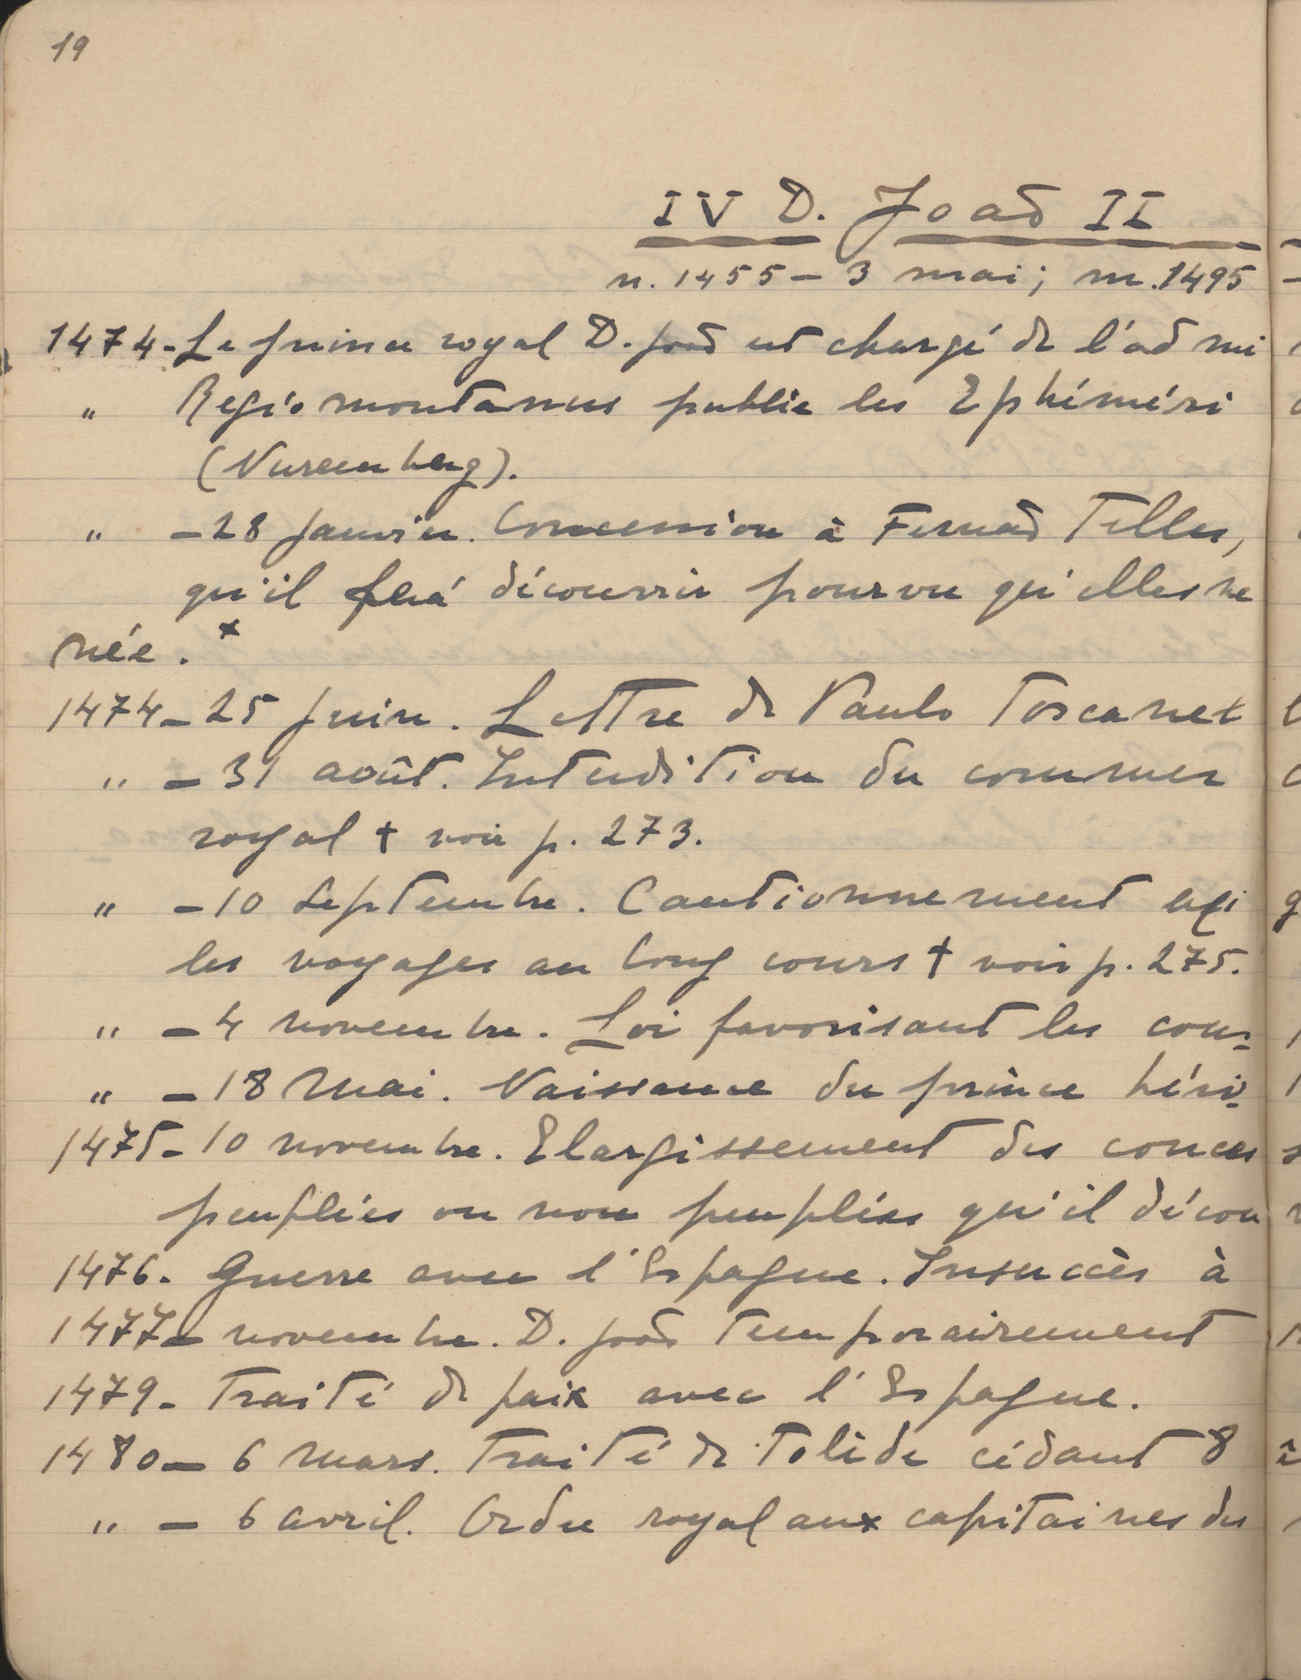 19
IV D. João II
n. 1455 – 3 mai; m. 1495
1474 - Le prince royal D. João est chargé de l'admi
" Regiomontanus publie les Ephéméri
(Nuremberg).
" – 28 janvier. Concession à Fernão Telles,
qu'il fera découvrir pourvu qu'elles ne
née. x
1474 – 25 juin. Lettre de Paulo Toscanel
" – 31 août. Interdition du commer
royal † voir p. 273.
" – 10 septembre. Cautionnement exi
les voyages au long cours † voir p. 275.
" – 4 novembre. Loi favorisant les cour-
" – 18 Mai. Naissance du prince héri-
1475 - 10 novembre. Elargissement des conces
peuplées ou non peuplées qu'il décou
1476 - Guerre avec l'Espagne. Insuccès à
1477 – novembre. D. João temporairement
1479 - Traité de paix avec l'Espagne.
1480 – 6 Mars. Traité de Tolède cédant 8
" – 6 avril. Ordre royal aux capitaines des